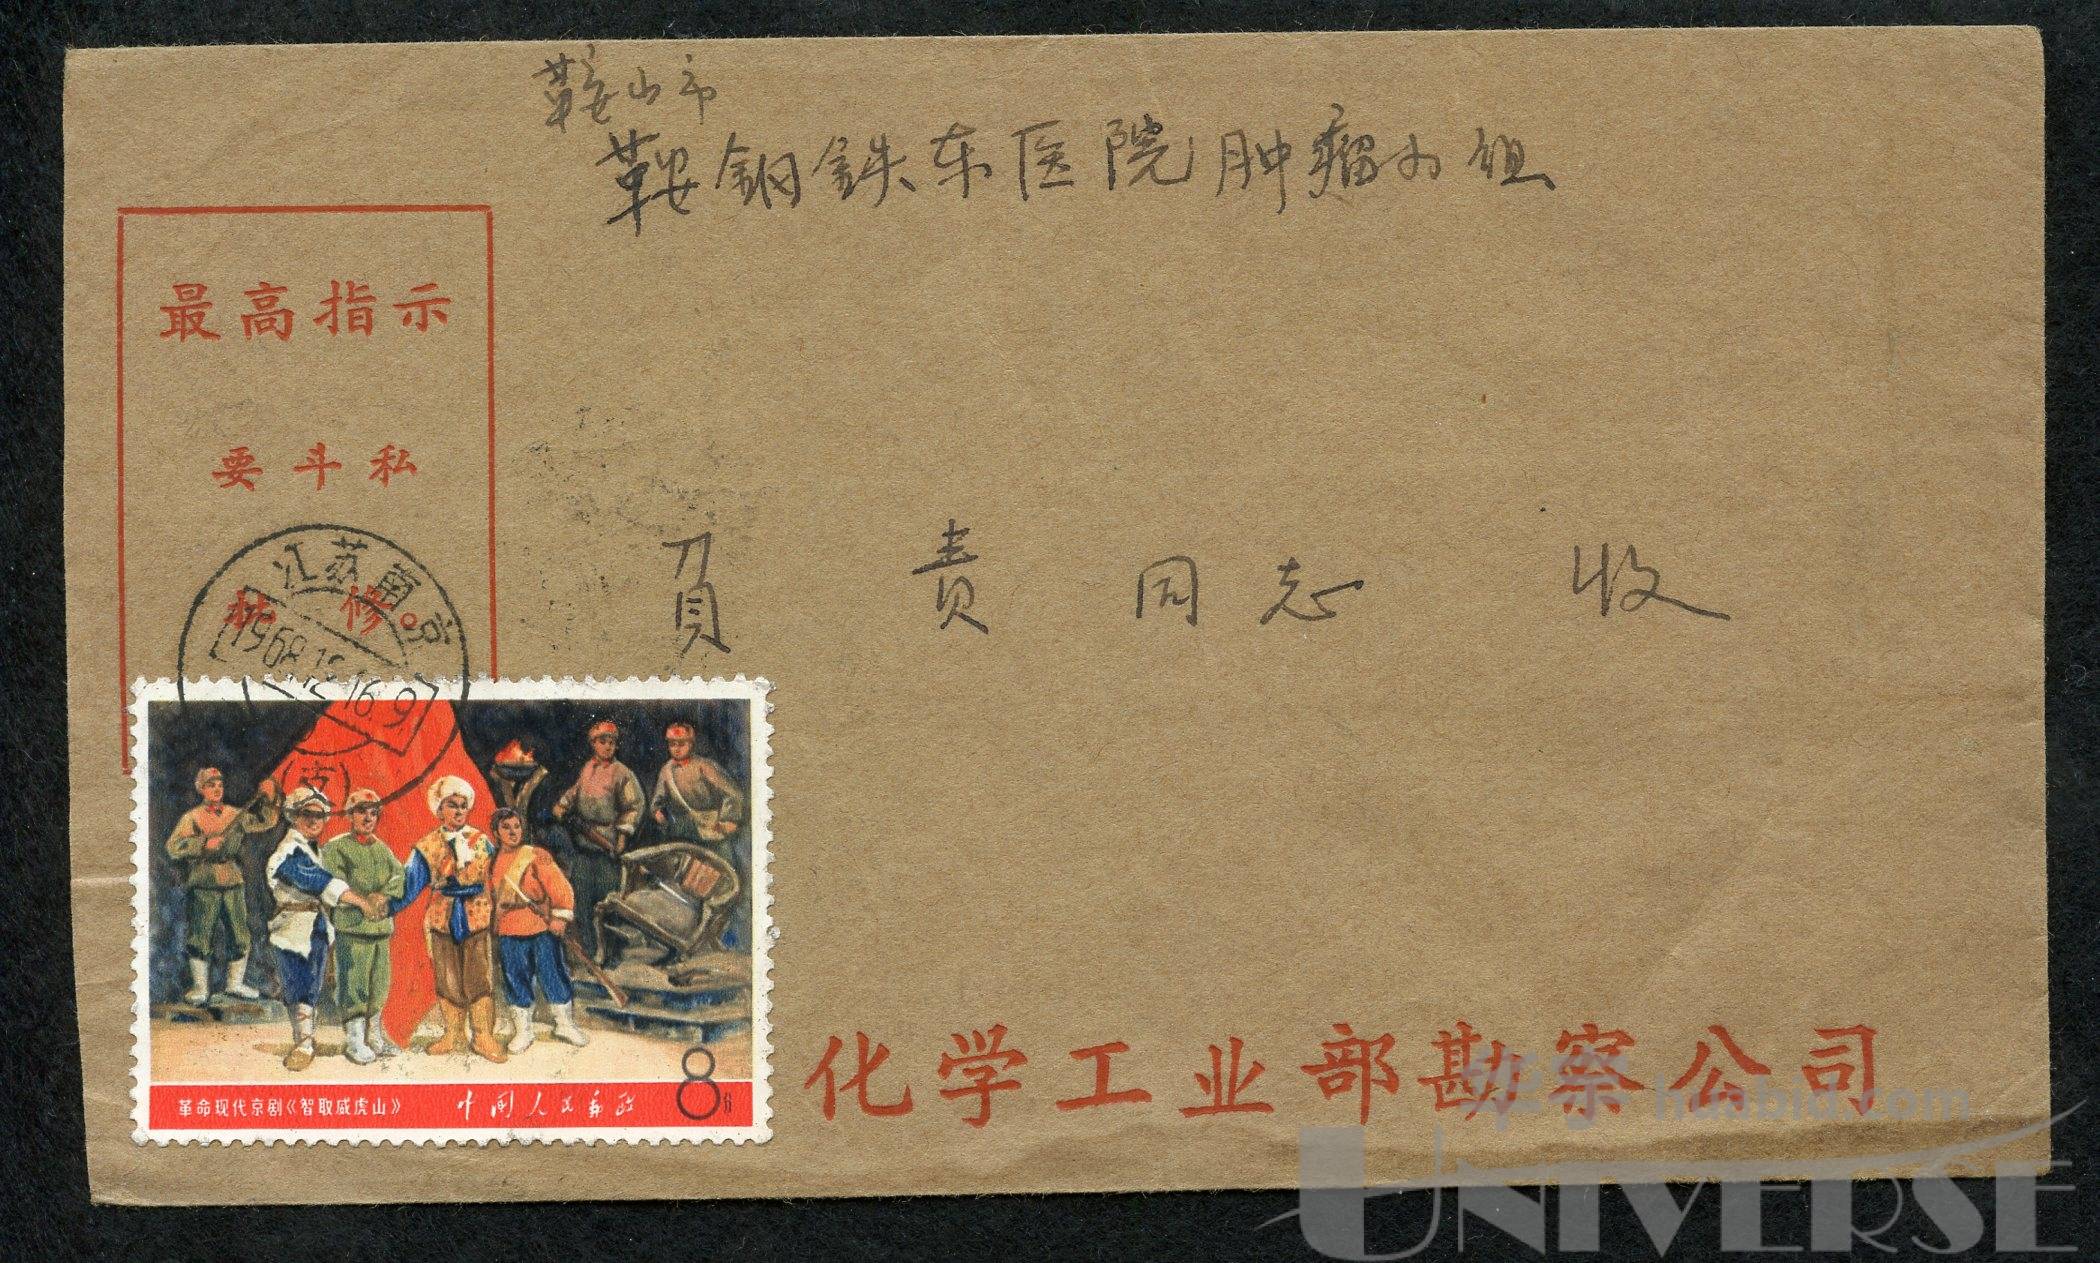 鞍山市
鞍钢铁东医院肿瘤小组
最高指示
要斗私
批修。
江苏南京
1968.12.16.9
(支)
负责同志 收
革命现代京剧《智取威虎山》 中国人民邮政 8分
化学工业部勘察公司
华宇 huabid.com
UNIVERSE